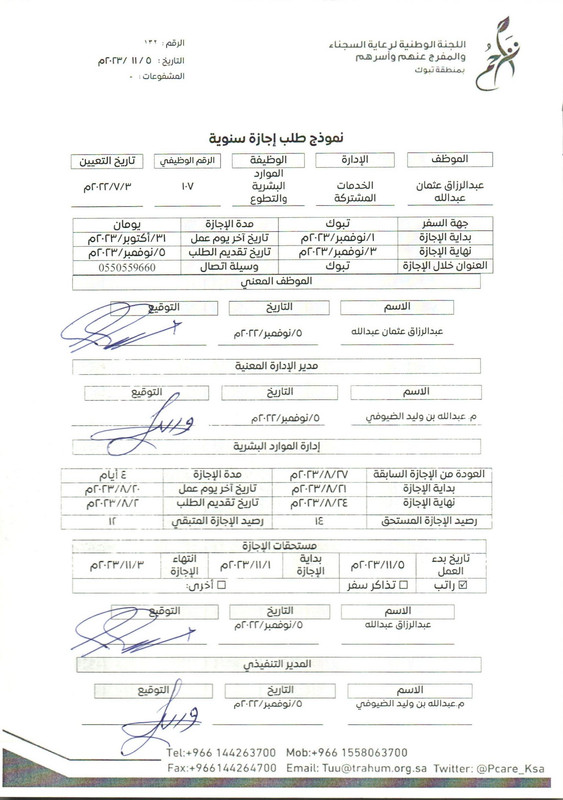 اللجنة الوطنية لرعاية السجناء
والمفرج عنهم وأسرهم
بمنطقة تبوك
الرقم: ١٣٢
التاريخ: ٥ / ١١ / ٢٠٢٣م
المشفوعات: ٠
نموذج طلب إجازة سنوية
الموظف الإدارة الوظيفة الرقم الوظيفي تاريخ التعيين
عبدالرزاق عثمان عبدالله الخدمات المشتركة الموارد البشرية والتطوع ١٠٧ ٢٠٢٢/٧/٣م
جهة السفر تبوك مدة الإجازة يومان
بداية الإجازة ١/نوفمبر/٢٠٢٣م تاريخ آخر يوم عمل ٣١/أكتوبر/٢٠٢٣م
نهاية الإجازة ٣/نوفمبر/٢٠٢٣م تاريخ تقديم الطلب ٥/نوفمبر/٢٠٢٣م
العنوان خلال الإجازة تبوك وسيلة اتصال 0550559660
الموظف المعني
الاسم التاريخ التوقيع
عبدالرزاق عثمان عبدالله ٥/نوفمبر/٢٠٢٢م
مدير الإدارة المعنية
الاسم التاريخ التوقيع
م. عبدالله بن وليد الضيوفي ٥/نوفمبر/٢٠٢٢م
إدارة الموارد البشرية
العودة من الإجازة السابقة ٢٠٢٣/٨/٢٧م مدة الإجازة ٤ أيام
بداية الإجازة ٢٠٢٣/٨/٢١م تاريخ آخر يوم عمل ٢٠٢٣/٨/٢٠م
نهاية الإجازة ٢٠٢٣/٨/٢٤م تاريخ تقديم الطلب ٢٠٢٣/٨/٢م
رصيد الإجازة المستحق ١٤ رصيد الإجازة المتبقي ١٢
مستحقات الإجازة
تاريخ بدء العمل ٢٠٢٣/١١/٥م بداية الإجازة ٢٠٢٣/١١/١م انتهاء الإجازة ٢٠٢٣/١١/٣م
☑ راتب ☐ تذاكر سفر ☐ أخرى:
الاسم التاريخ التوقيع
عبدالرزاق عبدالله ٥/نوفمبر/٢٠٢٢م
المدير التنفيذي
الاسم التاريخ التوقيع
م.عبدالله بن وليد الضيوفي ٥/نوفمبر/٢٠٢٢م
Tel:+966 144263700 Mob:+966 1558063700
Fax:+966144264700 Email: Tuu@trahum.org.sa Twitter: @Pcare_Ksa